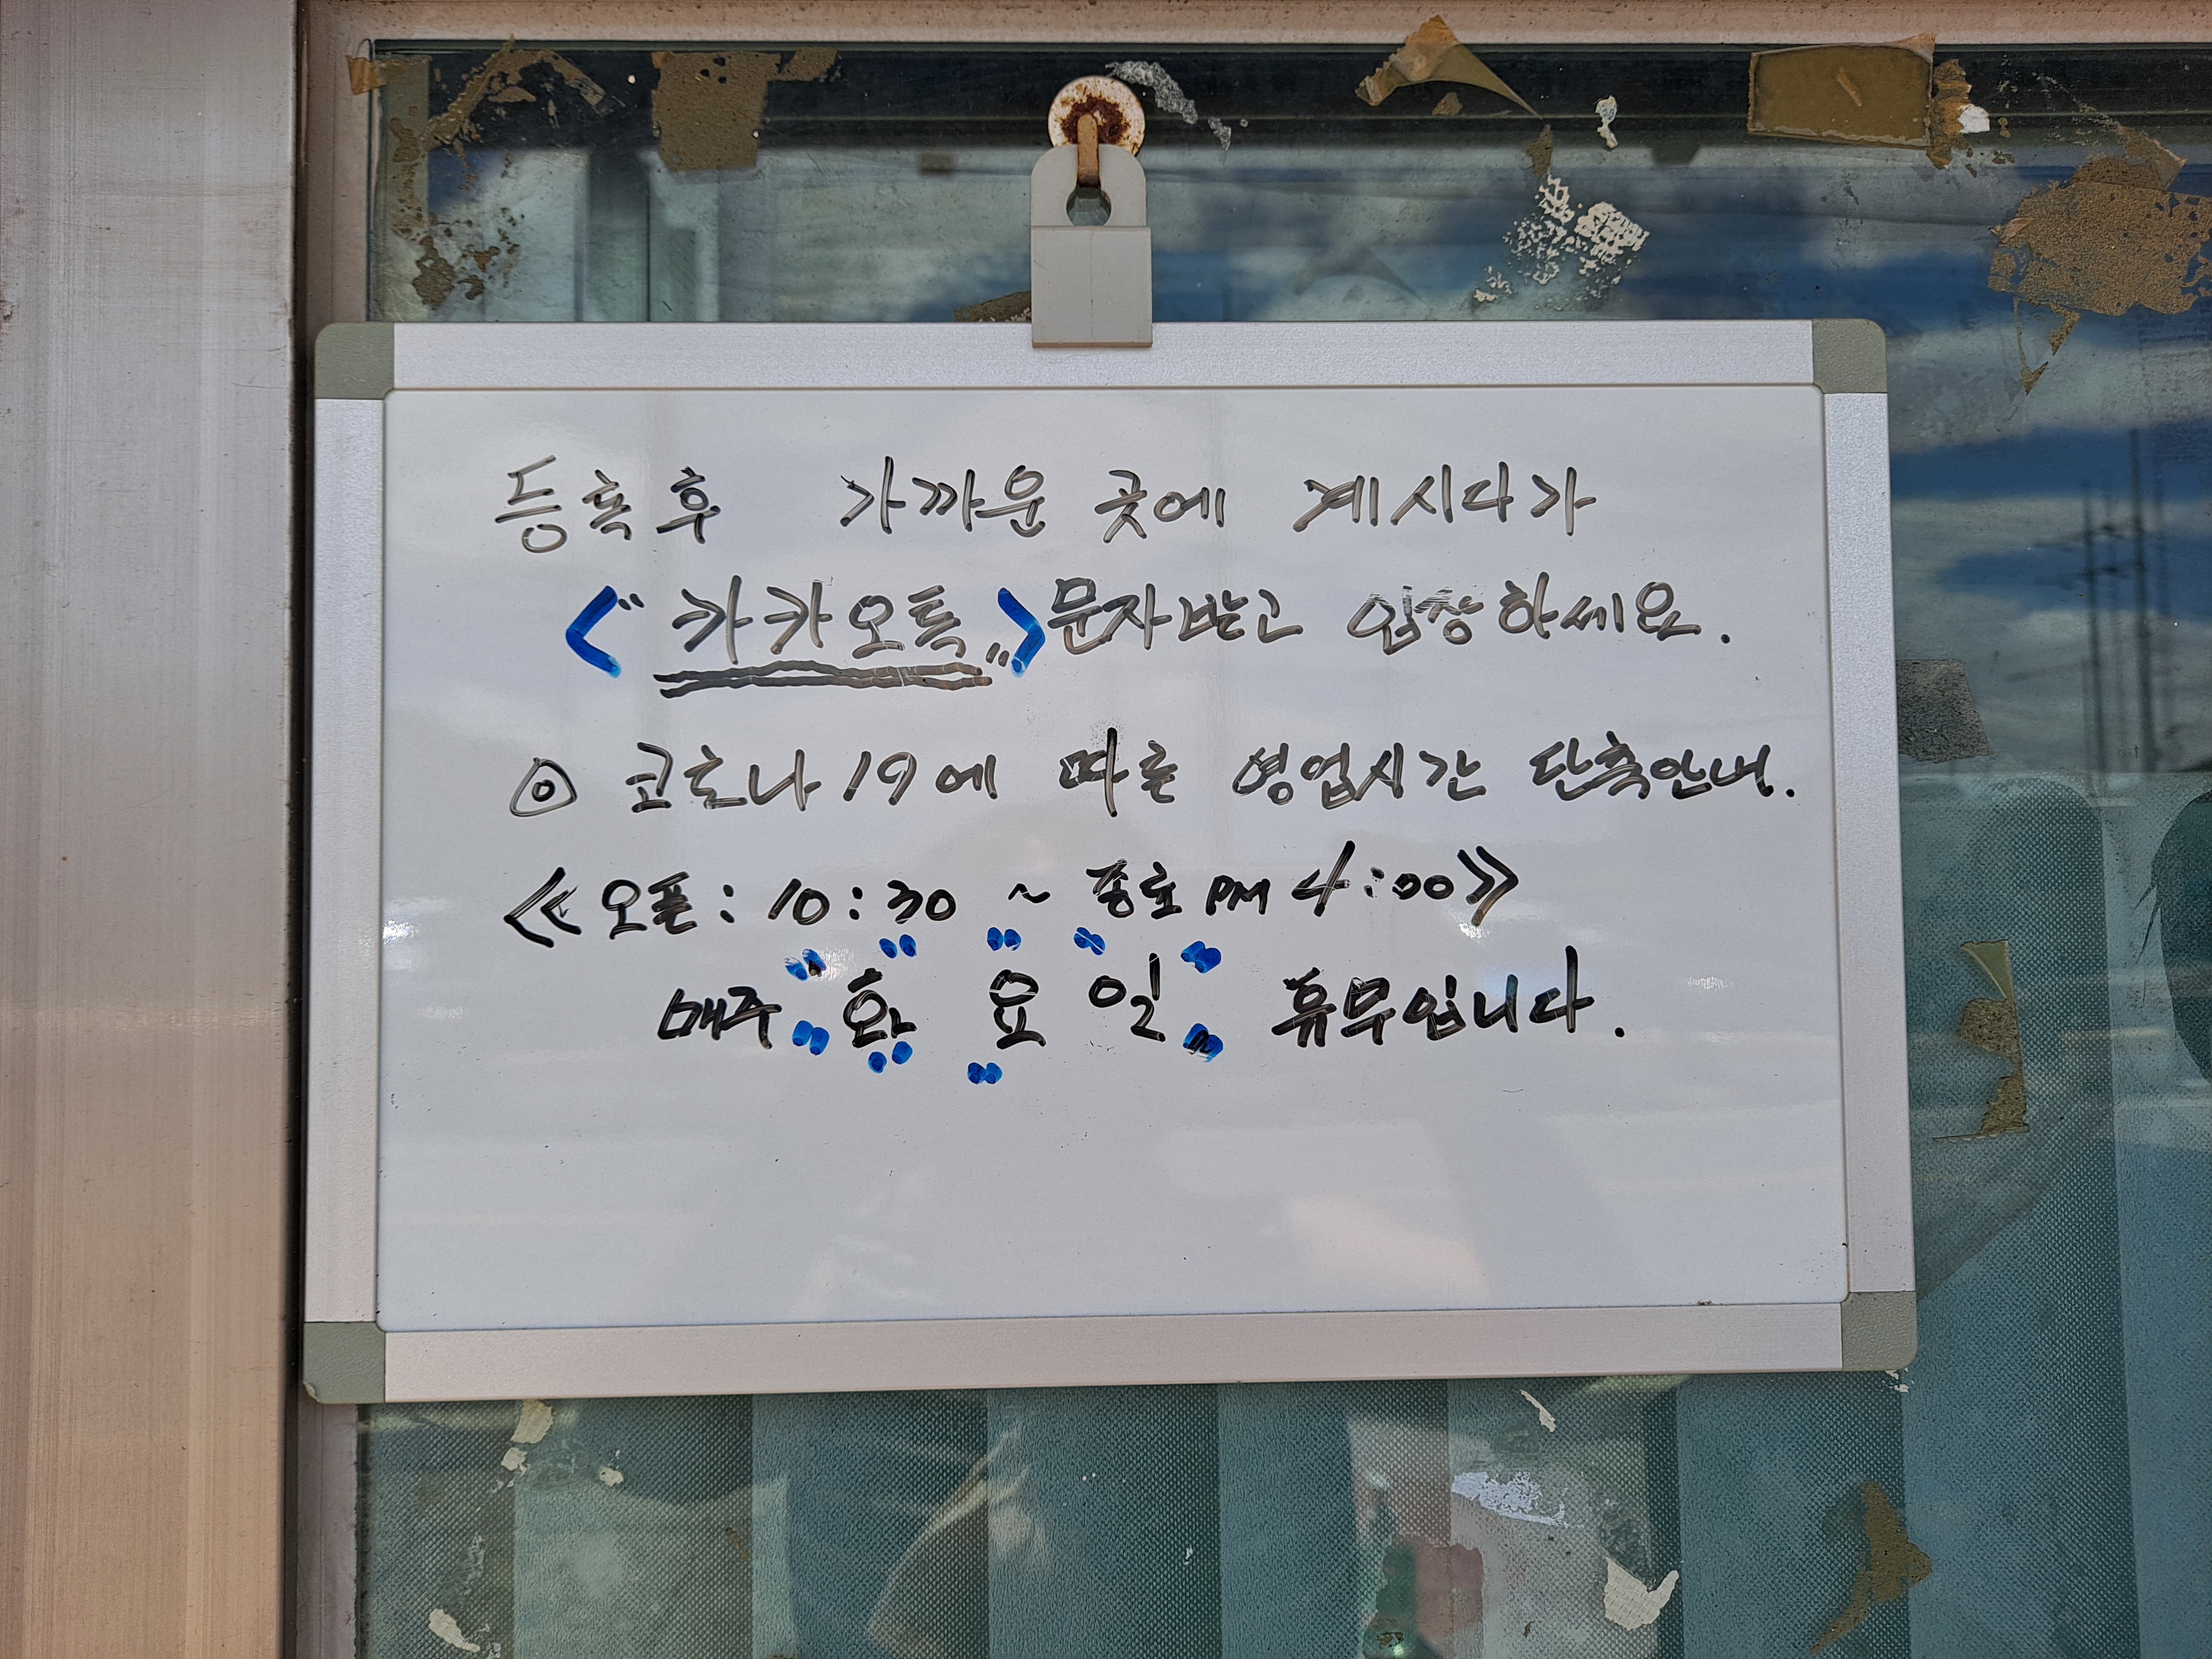 등록후 가까운 곳에 계시다가
<"카카오톡"> 문자받고 입장하세요.
◎ 코로나19에 따른 영업시간 단축안내.
≪오픈: 10:30 ~ 종료 PM 4:00≫
매주 "화 요 일" 휴무입니다.